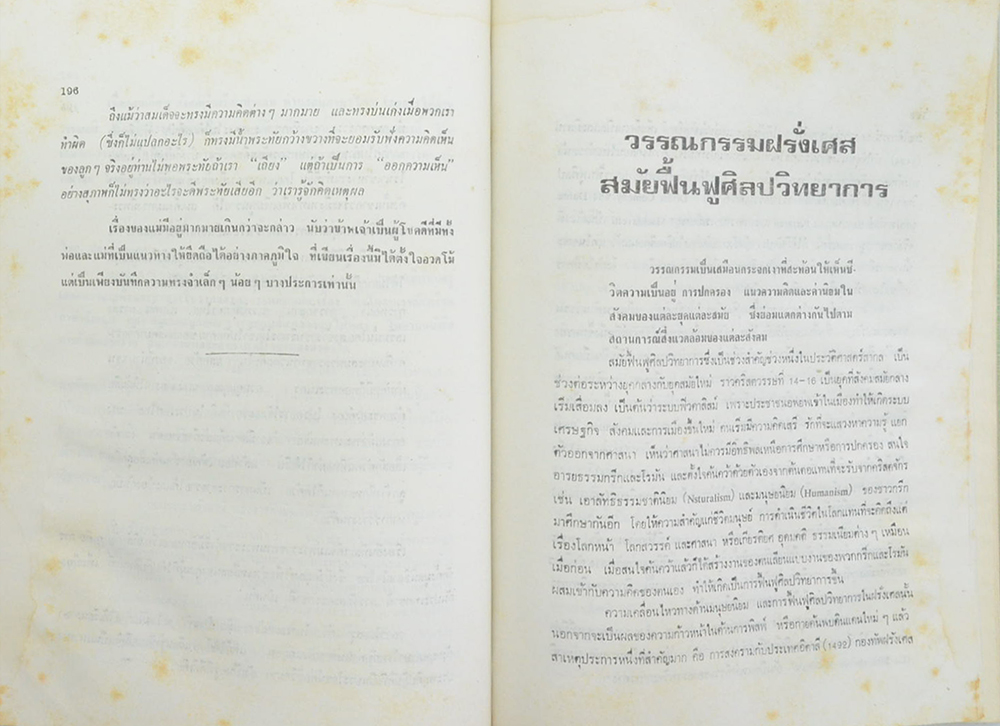 196
ถึงแม้ว่าสมเด็จจะทรงมีความคิดต่าง ๆ มากมาย และทรงบ่นเก่งเมื่อพวกเรา
ทำผิด (ซึ่งก็ไม่แปลกอะไร) ก็ทรงมีน้ำพระทัยกว้างขวางที่จะยอมรับฟังความคิดเห็น
ของลูก ๆ จริงอยู่ท่านไม่พอพระทัยถ้าเรา “เถียง” แต่ถ้าเป็นการ “ออกความเห็น”
อย่างสุภาพก็ไม่ทรงว่าอะไรจะดีพระทัยเสียอีก ว่าเรารู้จักคิดเหตุผล
เรื่องของแม่มีอยู่มากมายเกินกว่าจะกล่าว นับว่าข้าพเจ้าเป็นผู้โชคดีที่มีทั้ง
พ่อและแม่ที่เป็นแนวทางให้ยึดถือได้อย่างภาคภูมิใจ ที่เขียนเรื่องนี้มิได้ตั้งใจอวดโม้
แต่เป็นเพียงบันทึกความทรงจำเล็ก ๆ น้อย ๆ บางประการเท่านั้น
วรรณกรรมฝรั่งเศส
สมัยฟื้นฟูศิลปวิทยาการ
วรรณกรรมเป็นเสมือนกระจกเงาที่สะท้อนให้เห็นชี-
วิตความเป็นอยู่ การปกครอง แนวความคิดและค่านิยมใน
สังคมของแต่ละยุคแต่ละสมัย ซึ่งย่อมแตกต่างกันไปตาม
สถานการณ์สิ่งแวดล้อมของแต่ละสังคม
สมัยฟื้นฟูศิลปวิทยาการซึ่งเป็นช่วงสำคัญช่วงหนึ่งในประวัติศาสตร์สากล เป็น
ช่วงต่อระหว่างยุคกลางกับยุคสมัยใหม่ ราวคริสตวรรษที่ 14-16 เป็นยุคที่สังคมสมัยกลาง
เริ่มเสื่อมลง เป็นต้นว่าระบบฟิวดาลิสม์ เพราะประชาชนอพยพเข้าในเมืองทำให้เกิดระบบ
เศรษฐกิจ สังคมและการเมืองขึ้นใหม่ คนเริ่มมีความคิดเสรี รักที่จะแสวงหาความรู้ แยก
ตัวออกจากศาสนา เห็นว่าศาสนาไม่ควรมีอิทธิพลเหนือการศึกษาหรือการปกครอง สนใจ
อารยธรรมกรีกและโรมัน และตั้งใจค้นคว้าด้วยตัวเองจากต้นตอแทนที่จะรับจากคริสตจักร
เช่น เอาลัทธิธรรมชาตินิยม (Nsturalism) และมนุษยนิยม (Humanism) ของชาวกรีก
มาศึกษากันอีก โดยให้ความสำคัญแก่ชีวิตมนุษย์ การดำเนินชีวิตในโลกแทนที่จะคิดถึงแต่
เรื่องโลกหน้า โลกสวรรค์ และศาสนา หรือเกียรติยศ อุดมคติ ธรรมเนียมต่าง ๆ เหมือน
เมื่อก่อน เมื่อสนใจค้นคว้าแล้วก็ได้สร้างงานของตนเลียนแบบงานของพวกกรีกและโรมัน
ผสมเข้ากับความคิดของตนเอง ทำให้เกิดเป็นการฟื้นฟูศิลปวิทยาการขึ้น
ความเคลื่อนไหวทางด้านมนุษยนิยม และการฟื้นฟูศิลปวิทยาการในฝรั่งเศสนั้น
นอกจากจะเป็นผลของความก้าวหน้าในด้านการพิมพ์ หรือการค้นพบดินแดนใหม่ ๆ แล้ว
สาเหตุประการหนึ่งที่สำคัญมาก คือ การสงครามกับประเทศอิตาลี (1492) กองทัพฝรั่งเศส